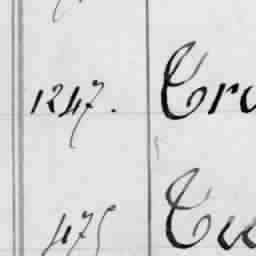 1247. Cro
475 Cu